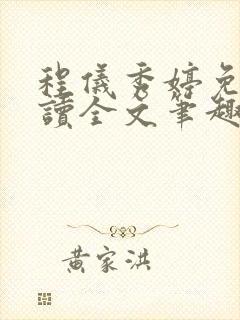 程儀秀婷免
讀全文筆趣
黃家洪